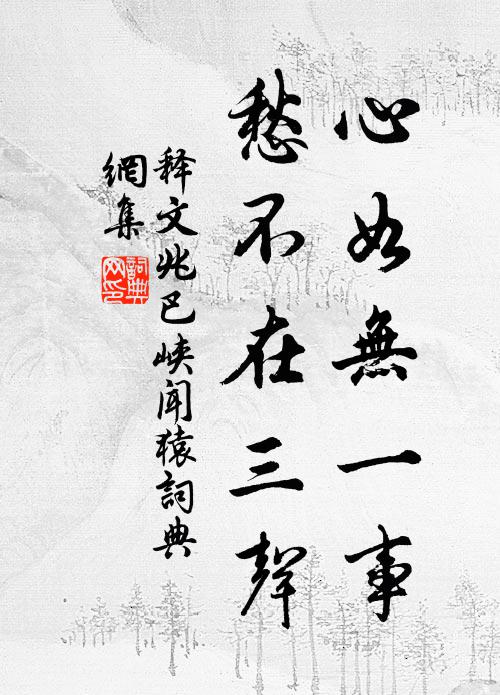 心如無一事
愁不在三聲
释文兆巴峡闻猿詞典
網集
詞典
网印